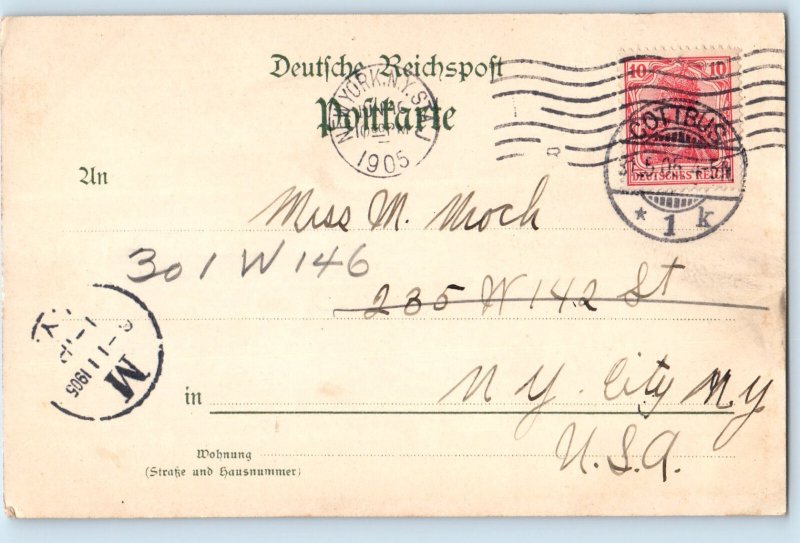 Deutsche Reichspost
Postkarte
NEW YORK, N.Y. STA. J
1030 PM
1905
10 10
DEUTSCHES REICH
COTTBUS
* 1 k
An
Miss M. Mock
301 W 146
235 W 142 St
in
N. Y. City N Y
U. S. A.
M
1905
Wohnung
(Straße und Hausnummer)